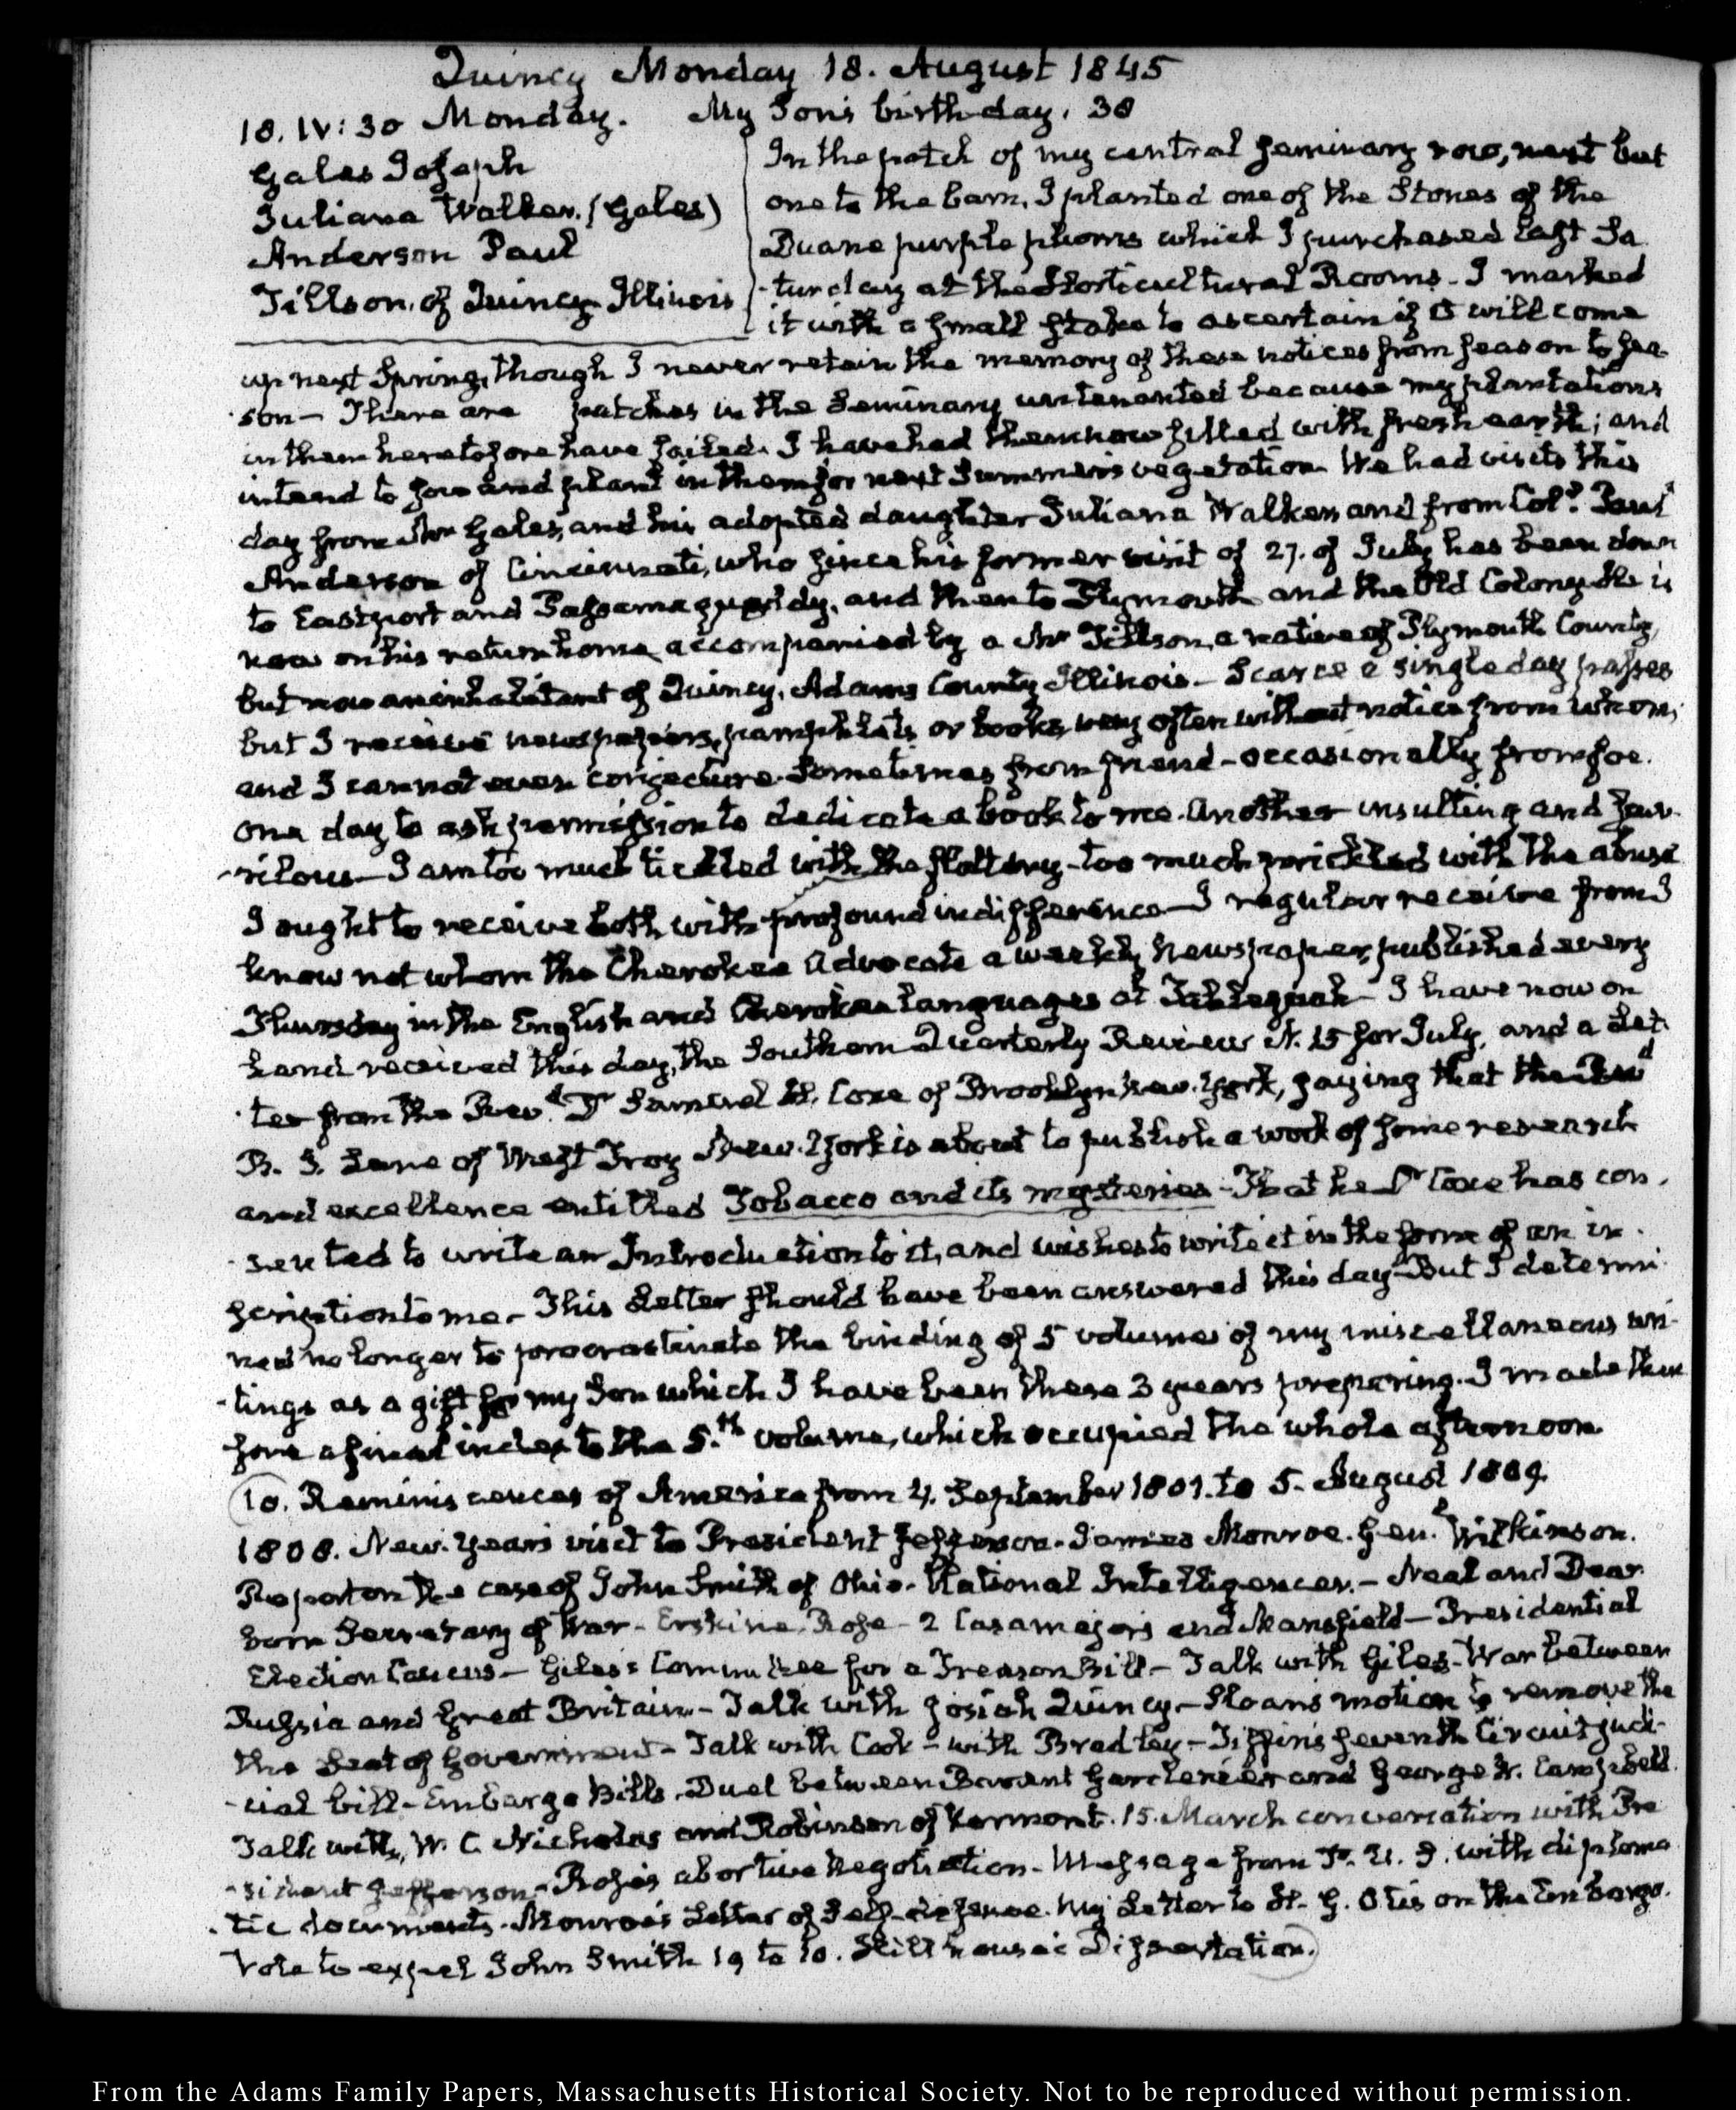 Quincy Monday 18. August 1845
18. IV:30 Monday. My Son's birth-day. 38
Gales Joseph
Juliana Walker. (Gales)
Anderson Paul
Tillson. of Quincy Illinois
In the patch of my central Seminary row, next but
one to the barn, I planted one of the Stones of the
Duane purple plums which I purchased last Sa
-turday at the Horticultural Rooms. I marked
it with a small stake to ascertain if it will come
up next Spring, though I never retain the memory of these notices from season to sea
son— There are patches in the Seminary untenanted because my plantations
in them heretofore have failed. I have had them now filled with fresh earth; and
intend to sow and plant in them for next Summer's vegetation. We had visits this
day from Mr Gales, and his adopted daughter Juliana Walker and from Coll. Paul
Anderson of Cincinnati, who since his former visit of 27. of July has been down
to Eastport and Passamaquoddy, and then to Plymouth and the Old Colony. He is
now on his return home, accompanied by a Mr Tillson, a native of Plymouth County,
but now an inhabitant of Quincy, Adams County Illinois— Scarce a single day passes
but I receive newspapers, pamphlets or books, very often without notice from whom,
and I cannot even conjecture. Sometimes from friend—occasionally from foe.
One day to ask permission to dedicate a book to me. Another insulting and scur-
-rilous— I am too much tickled with the flattery—too much prickled with the abuse
I ought to receive both with profound indifference— I regular receive from I
know not whom the Cherokee Advocate a weekly Newspaper, published every
Thursday in the English and Cherokee languages at Tahlequah— I have now on
hand received this day, the Southern Quarterly Review N. 15 for July, and a Let
-ter from the Revd Dr Samuel H. Coxe of Brooklyn New-York, saying that the Revd
B. I. Lane of West Troy New-York is about to publish a work of some research
and excellence entitled Tobacco and its mysteries—That he Dr Coxe has con-
-sented to write an Introduction to it, and wishes to write it in the form of an in-
scription to me— This Letter should have been answered this day—But I determi-
ned no longer to procrastinate the binding of 5 volumes of my miscellaneous wri-
-tings as a gift for my Son which I have been these 3 years preparing. I made there
fore a final index to the 5.th volume, which occupied the whole afternoon
(10. Reminiscences of America from 4. September 1801. to 5. August 1809.
1808. New-Years visit to President Jefferson—James Monroe. Genl Wilkinson.
Report on the case of John Smith of Ohio. National Intelligencer.— Neal and Dear
born Secretary of War— Erskine, Rose— 2 Casamajors and Mansfield— Presidential
Election Caucus— Giles's Committee for a Treason Bill— Talk with Giles—War between
Russia and Great Britain.— Talk with Josiah Quincy,—Sloan's motion to remove the
the Seat of Government— Talk with Cook—with Bradley—Tiffin's seventh Circuit judi-
-cial bill—Embargo Bills. Duel between Barent Gardenier and George W. Campbell.
Talk with W. C. Nicholas and Robinson of Vermont. 15. March conversation with Pre
-sident Jefferson—Rose's abortive Negotiation—Message from P. U. S. with diploma
-tic documents—Monroe's Letter of Self-defence. My Letter to H. G. Otis on the Embargo.
Vote to expel John Smith 19 to 10. Hillhouse's Dissertation.)
From the Adams Family Papers, Massachusetts Historical Society. Not to be reproduced without permission.